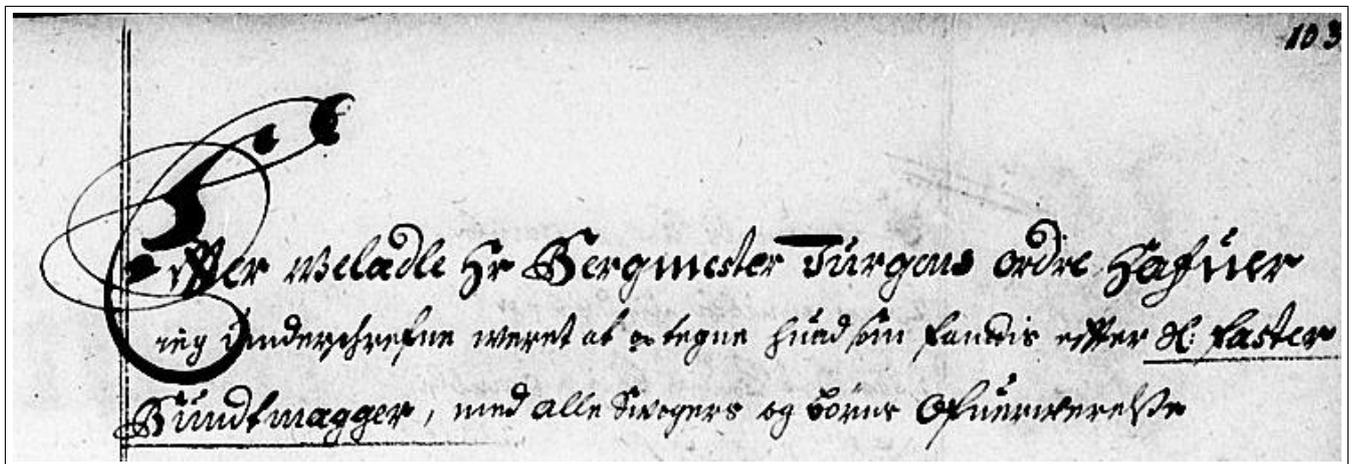 103
Effter weladle Hr Bergmester Jürgens ordre Hafuer
ieg Underschrefne weret at op tegne huad som fandtis effter Sl: Caster
Bundtmagger, med alle Swogers og börns Ofuerwerelße